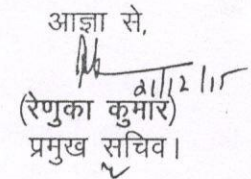 आज्ञा से,
21/12/15
(रेणुका कुमार)
प्रमुख सचिव।